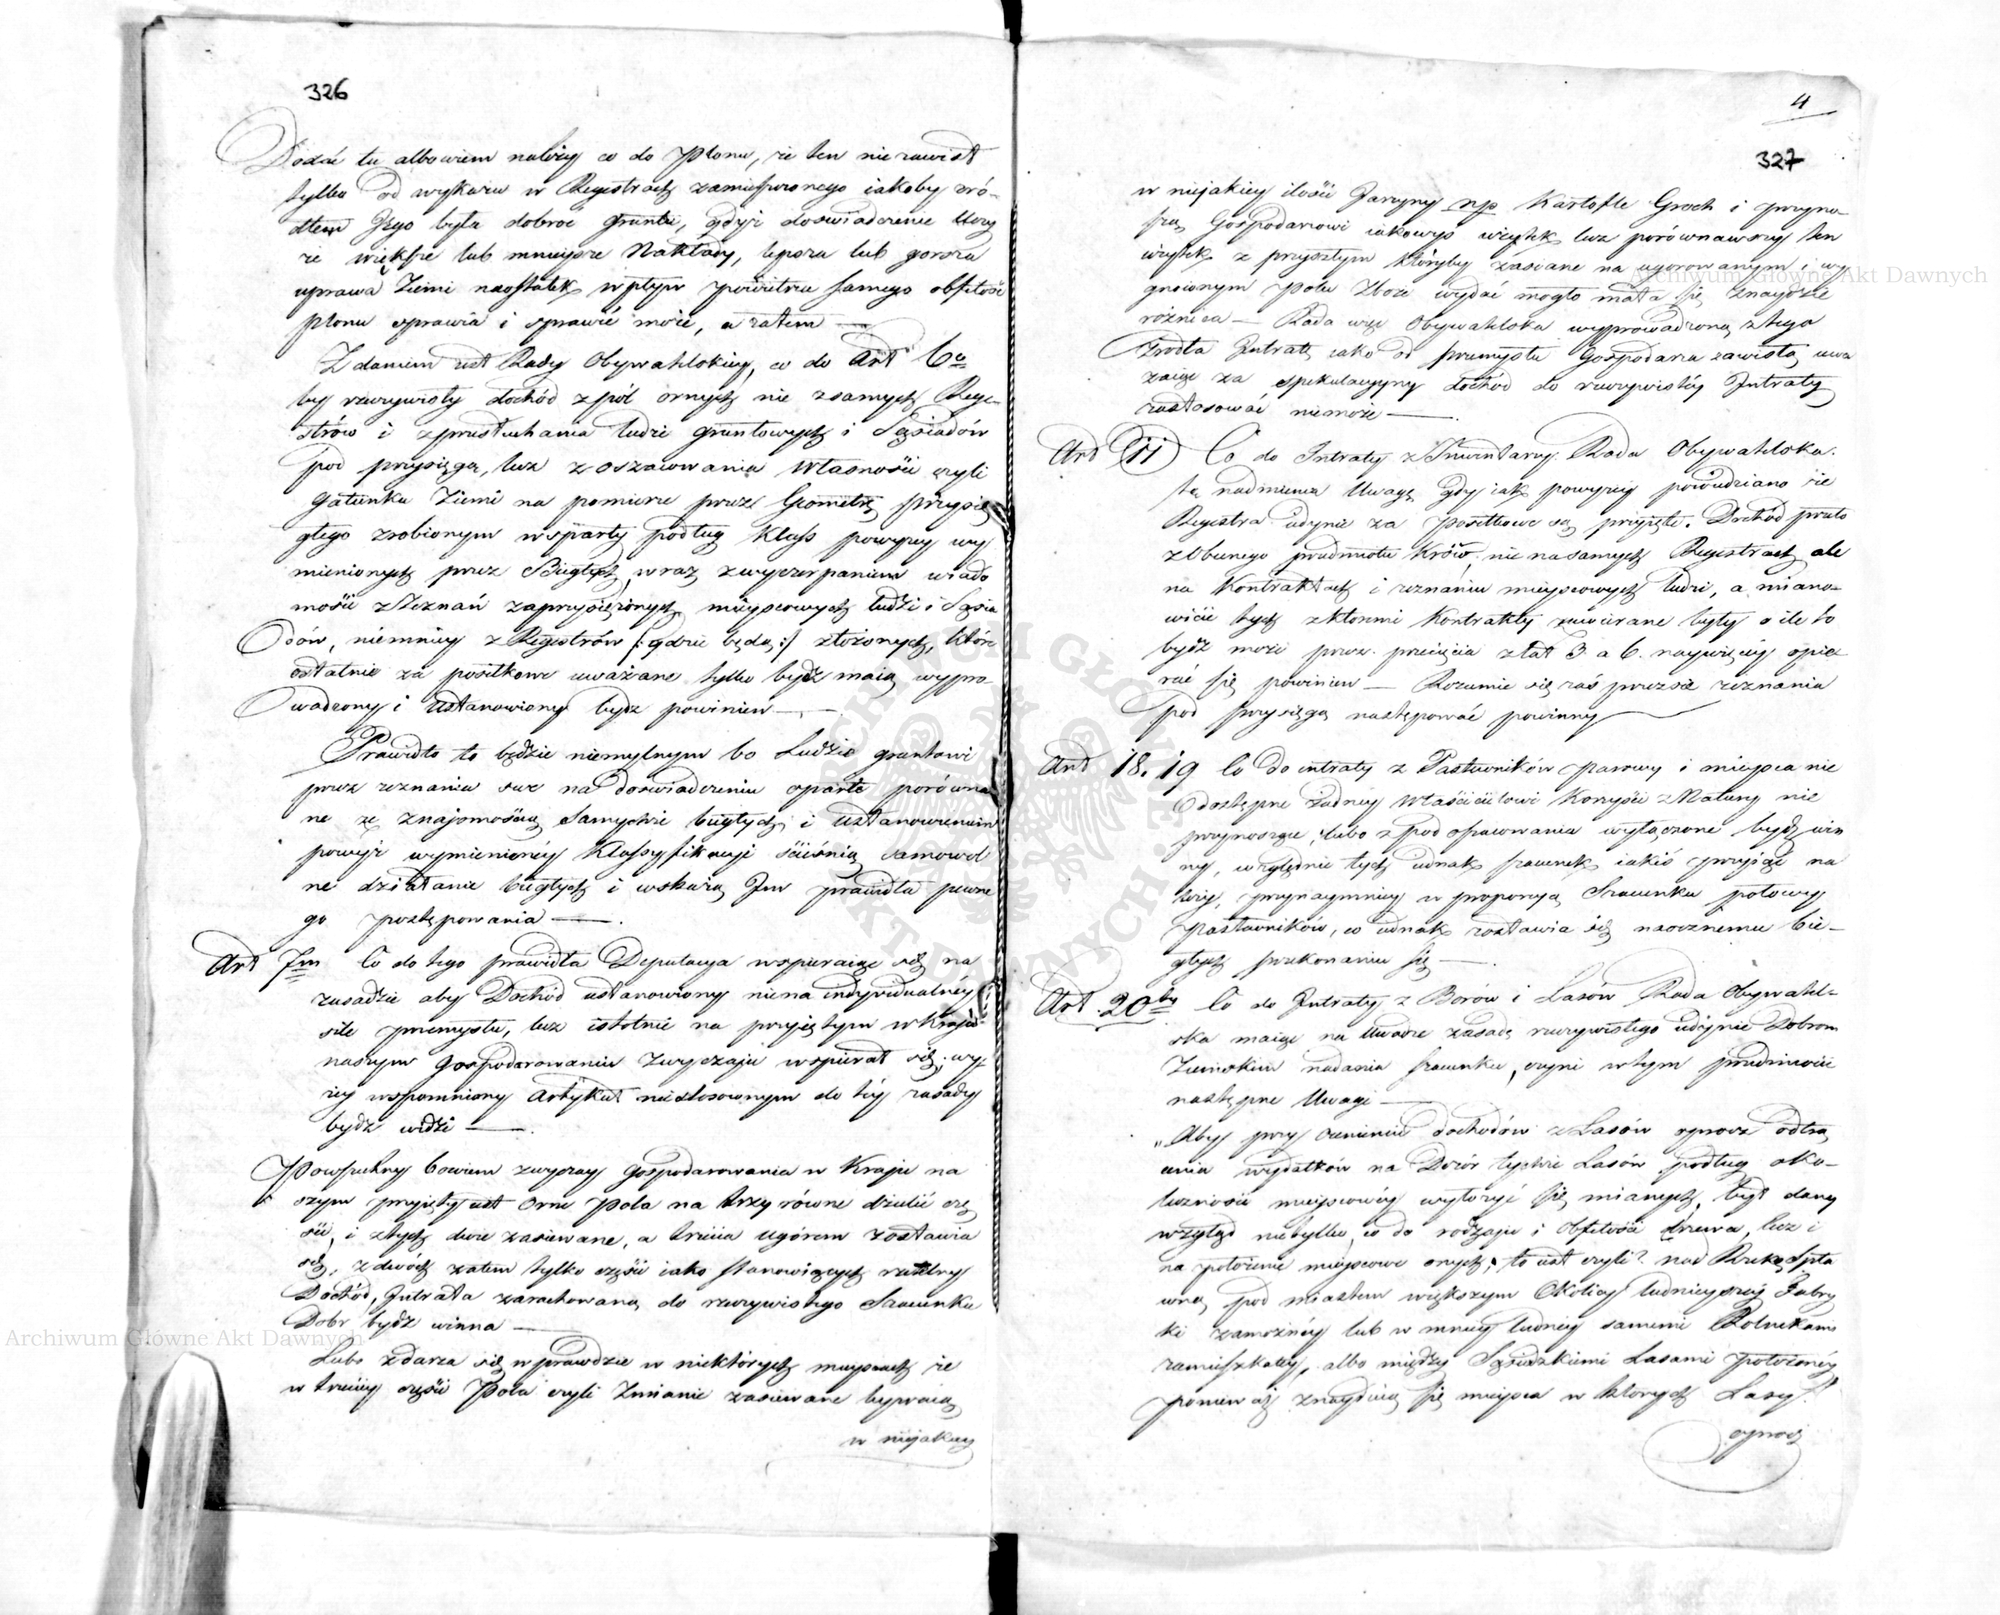 326
Dodać tu albowiem należy co do Plonu, że ten nie zawisł
tylko od wykazu w Regestrach zamieszczonego iakoby źró-
dłem Jego była dobroć gruntu, gdyż doświadczenie uczy
że większe lub mnieysze Nakłady, lepsza lub gorsza
uprawa Ziemi naostatek wpływ powietrza samego obfitość
plonu sprawia i sprawić może, a zatem —
Zdaniem iest Rady Obywatelskiey, co do Art 6o
by rzeczywisty dochód z pól ornych nie z samych Rege-
strów i z przesłuchania ludzi gruntowych i Sąsiadów
pod przysięgą, lecz z oszacowania Własności czyli
Gatunku Ziemi na pomiarze przez Geometrę przysię
głego zrobionym wsparty podług Klass powyżey wy
mienionych przez Biegłych wraz z wyczerpaniem wiado
mości z Zeznań zaprzysiężonych mieyscowych ludzi i Sąsia
dów, niemniey z Regestrów /: gdzie będą :/ złożonych, które
ostatnie za posiłkowe uważane tylko bydź maią wypro-
wadzony i ustanowiony bydz powinien —
Prawidło to będzie niemylnym bo Ludzie gruntowi
przez zeznania swe na doświadczeniu oparte porówna
ne ze znajomością samychże biegłych i ustanowieniem
powyż wymienionéy Klassyfikacji ściśnią samowol
ne działanie biegłych i wskażą Im prawidła pewne
go postępowania —.
Art 7m Co do tego prawidła Deputacya wspieraiąc się na
zasadzie aby Dochód ustanowiony nie na indywidualnéy
sile przemysłu, lecz istotnie na przyiętym w Kraju
naszym Gospodarowania Zwyczaju wspierał się, wy
żey wspomniony Artykuł niestosownym do téy zasady
bydź widzi —.
Powszechny bowiem zwyczay Gospodarowania w Kraju na
szym przyięty iest Orne Pola na trzy równe dzielić czę
ści, i z tych dwie zasiewane, a trzecia ugórem zostawia
się, z dwóch zatem tylko części iako stanowiących rzetelny
Dochód, Intrata zarachowaną do rzeczywistego Szacunku
Dóbr bydź winna —
Lubo zdarza się wprawdzie w niektórych mieyscach że
w trzeciey części Pola czyli Zmianie zasiewane bywaią
w niejakiey
4
327
w niejakiey ilości Jarzyny np Kartofle Groch i przyno-
szą Gospodarzowi iakowyś użytek lecz porównawszy ten
użytek z przyszłym któryby zasiane na ugorowanym i wy
gnoionym Polu Zboże wydać mogło mała się znaydzie
różnica — Rada więc Obywatelska wyprowadzoną z tego
źródła Intratę iako od przemysłu Gospodarza zawisłą uwa
żaiąc za spekulacyyny dochód do rzeczywistéy Intraty
zastosować niemoże —.
Art 11 Co do Intraty z Inwentarzy Rada Obywatelska
tę nadmienia Uwagę gdy iak powyżey powiedziano że
Regestra iedynie za Posiłkowe są przyięte. Dochód przeto
z Obecnego przedmiotu Krów, nie na samych Regestrach ale
na Kontraktach i zeznaniu mieyscowych ludzi, a miano-
wicie tych z któremi Kontrakty zawierane były o ile to
bydź może przez przecięcia z lat 3. a 6. naywięcéy opie
rać się powinien — Rozumie się zaś przez się zeznania
pod przysięgą następować powinny
Art 18. 19 Co do intraty z Pastwników parowy i mieysca nie
dostępne żadnéy Właścicielowi Korzyści z Natury nie
przynoszące, lubo z pod opisowania wyłączone bydź win
ny, względnie tych iednak szacunek iakiś przyiąć na
leży, przynaymniey w proporcyą Szacunku połowy
pastwników, co iednak zostawia się naocznemu bie-
głych przekonaniu się —.
Art. 20ty Co do Intraty z Borów i Lasów Rada Obywatel-
ska maiąc na Uwadze zasadę rzeczywistego iedynie Dobrom
Ziemskim nadania szacunku, czyni w tym przedmiocie
następne Uwagi —
„Aby przy ocenieniu dochodów z Lasów oprócz odtrą
cenia wydatków na Dozór tychże Lasów podług oko-
liczności mieyscowéy wyłożyć się mianych, był dany
wzgląd nietylko co do rodzaju i Obfitości drzewa, lecz i
na położenie mieyscowe onych, to iest czyli? nad Rzeką Spła
wną pod miastem większym Okolicy ludnieyszéy Fabry
ki zamożnéy lub w mniey ludnéy samemi Rolnikami
zamieszkałey, albo między Sąsiedzkiemi Lasami położonéy
ponieważ znayduią się mieysca w których Lasy
oprócz